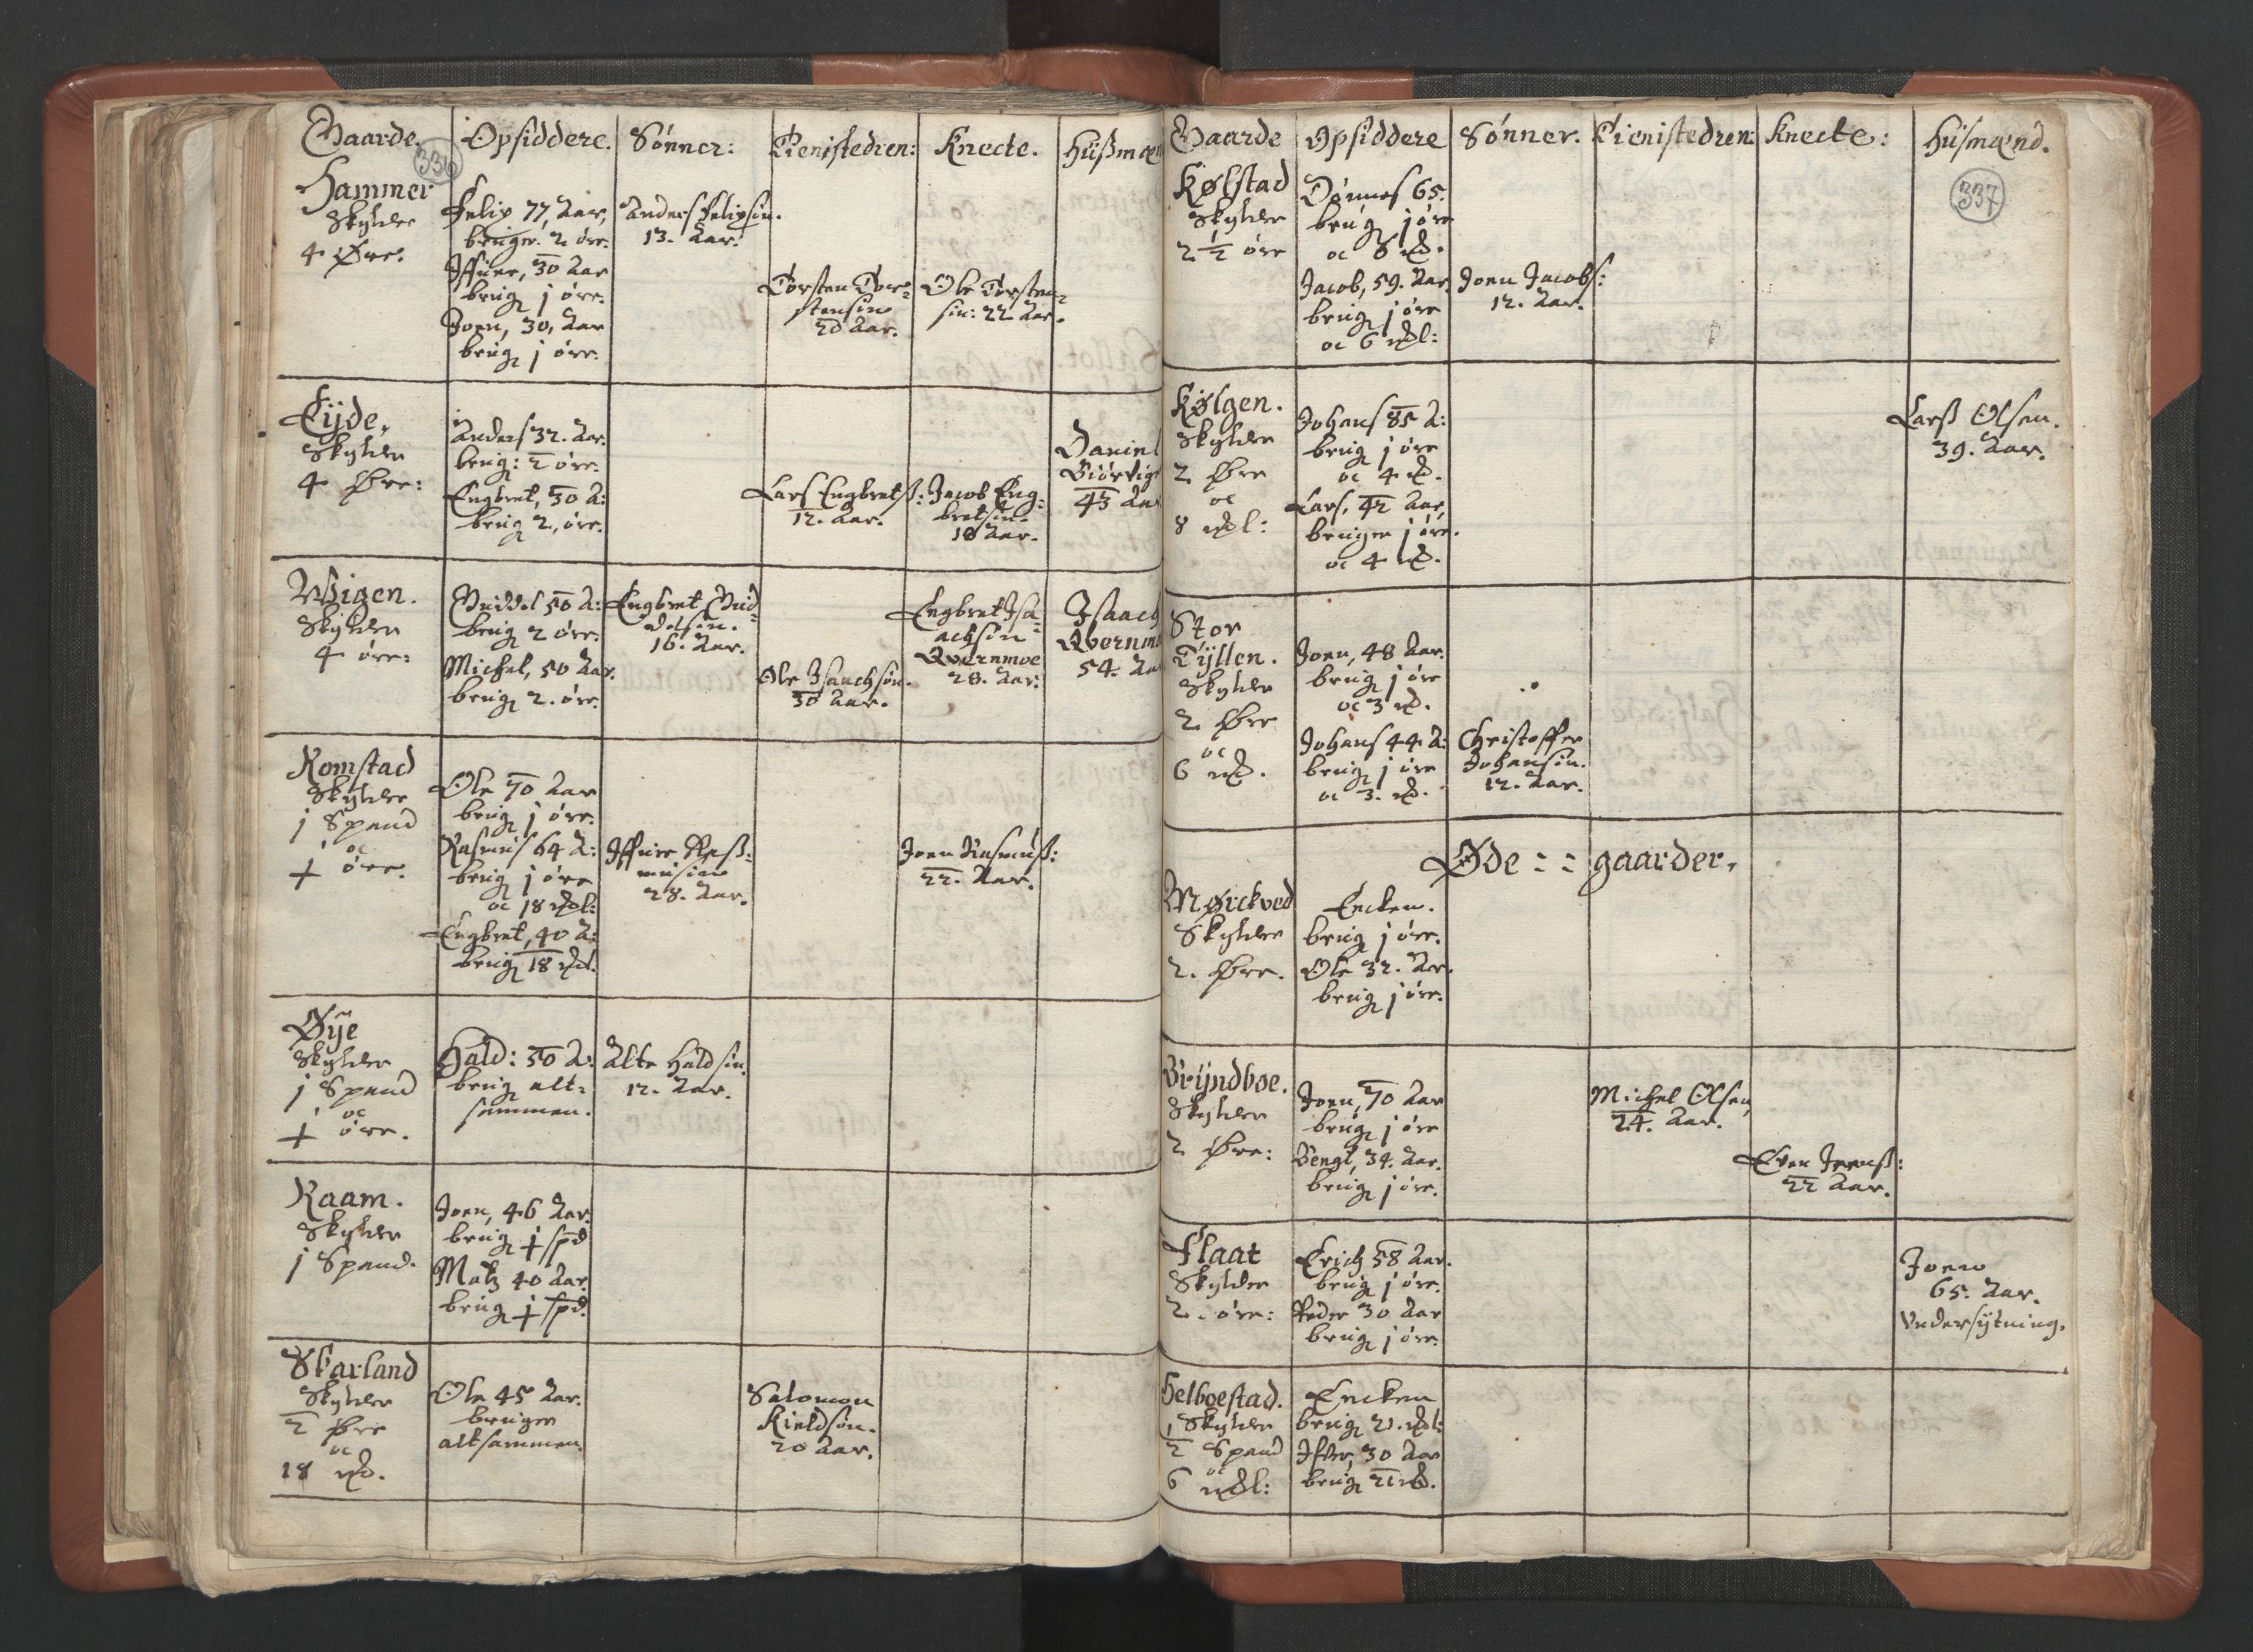 Gaarde. Opsiddere. Sønner: Tienistedren: Knecte. Hüßmæn
336
Hammer
Skylder
4 Øre:
Felix 77, Aar,
bruger. 2 öre.
Iffuer, 30 Aar
brug j öre.
Joen, 30, Aar
brug j öre.
Anders Felixsøn.
13. Aar.
Torsten Tor-
stensøn
20 Aar.
Ole Torsten-
sön: 22 Aar.
Eijde,
Skylder
4 Øre:
Anders 32. Aar.
brug: 2 öre.
Engbret, 50 A:
brug 2, öre.
Lars Engbretß:
12. Aar.
Jacob Eng-
bretsön.
18 Aar.
Daniel
Biörvig
43 Aar
Wigen.
Skylder
4 öre:
Guddol 50 A:
brug 2 öre.
Michel, 50 Aar.
brug 2. öre.
Engbret Gud-
dolsön.
16. Aar.
Ole Isaachsön.
30 Aar.
Engbret Isa-
achsön
Qvernmoe
28. Aar:
Isaach
Qvernmo
54. Aa
Romstad
Skylder
j Spand
oc
½ öre.
Ole 70 Aar
brug j öre.
Rasmus 64 A:
brug j öre
oc 18 mkl:
Engbret, 40 A:
brug 18 mkl.
Iffuer Raß-
musøn
28. Aar.
Joen Rasmusß:
22. Aar.
Øÿe
Skylder
j Spand
oc
½ öre.
Hald: 50 A:
brug alt-
sammen.
Alte Haldsön.
12. Aar.
Raam.
Skylder
j Spand.
Joen, 46 Aar.
brug ½ spd
Matz 40 Aar
brug ½ spd.
Skarland
Skylder
2 Øre
oc
18 mk.
Ole 45 Aar.
bruger
altsammen.
Salomon
Kieldsøn.
20 Aar.
Gaarde Opsiddere Sønner. Tienistedren: Knecte: Hüsmænd.
337
Kølstad
Skylder
2 ½ öre
Tönnes 65.
brug j öre
oc 6 mk.
Jacob, 59. Aar.
brug j öre
oc 6 mkl:
Joen Jacobs:
12. Aar.
Kølgen.
Skylder
2 Øre
oc
8 mkl:
Johans 85 A:
brug j öre
oc 4 mk.
Lars, 42 Aar,
bruger j öre.
oc 4 mk.
Larß Olsen.
39. Aar.
Stor
Tÿllen.
Skylder
2 Øre
oc
6 mk.
Joen, 48 Aar.
brug j öre
oc 3 mk.
Johans 44 A:
brug j öre
oc 3. mk.
Christoffer
Johansön.
12. Aar.
Øde == gaarder,
Mørckved
Skylder
2. Øre.
Encken.
brug j öre.
Ole 32. Aar.
brug j öre.
Brÿndboe.
Skylder
2 Øre:
Joen, 70 Aar
brug j öre
Bengt, 34. Aar.
brug j öre.
Michel Olsen,
24. Aar.
Even Joenß:
22 Aar.
Flaat
Skylder
2. öre:
Erich 58 Aar.
brug j öre.
Peder 30 Aar
brug j öre.
Joen
65. Aar.
Vndersijtning.
Helboestad.
Skylder
½ Spand
oc
6 mkl:
Encken
brug 21. mkl:
Ifver, 30 Aar
brug 21 mk.